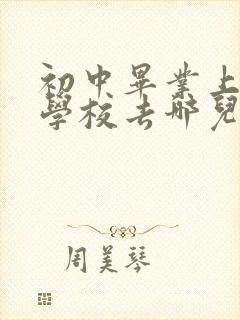 初中畢業上
學校去哪兒
周美琴